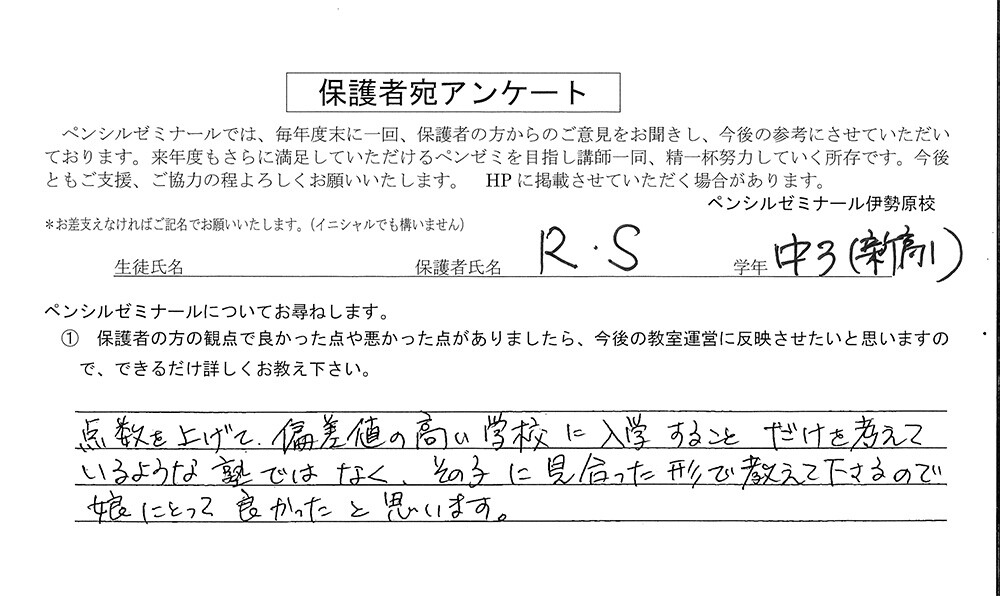 保護者宛アンケート
ペンシルゼミナールでは、毎年度末に一回、保護者の方からのご意見をお聞きし、今後の参考にさせていただい
ております。来年度もさらに満足していただけるペンゼミを目指し講師一同、精一杯努力していく所存です。今後
ともご支援、ご協力の程よろしくお願いいたします。 HPに掲載させていただく場合があります。
ペンシルゼミナール伊勢原校
*お差支えなければご記名でお願いいたします。(イニシャルでも構いません)
生徒氏名 保護者氏名 R.S 学年 中3(新高1)
ペンシルゼミナールについてお尋ねします。
① 保護者の方の観点で良かった点や悪かった点がありましたら、今後の教室運営に反映させたいと思いますの
で、できるだけ詳しくお教え下さい。
点数を上げて、偏差値の高い学校に入学することだけを考えて
いるような塾ではなく、その子に見合った形で教えて下さるので
娘にとって良かったと思います。